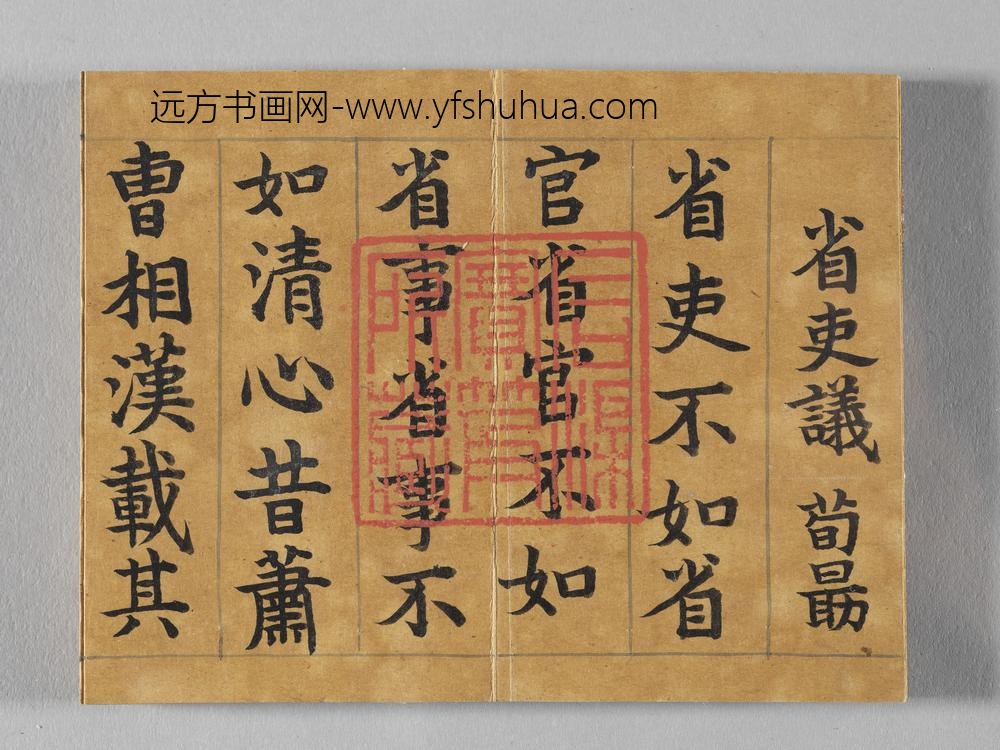 远方书画网-www.yfshuhua.com
省吏議 荀勗
省吏不如省
官省官不如
省事省事不
如清心昔蕭
曹相漢載其